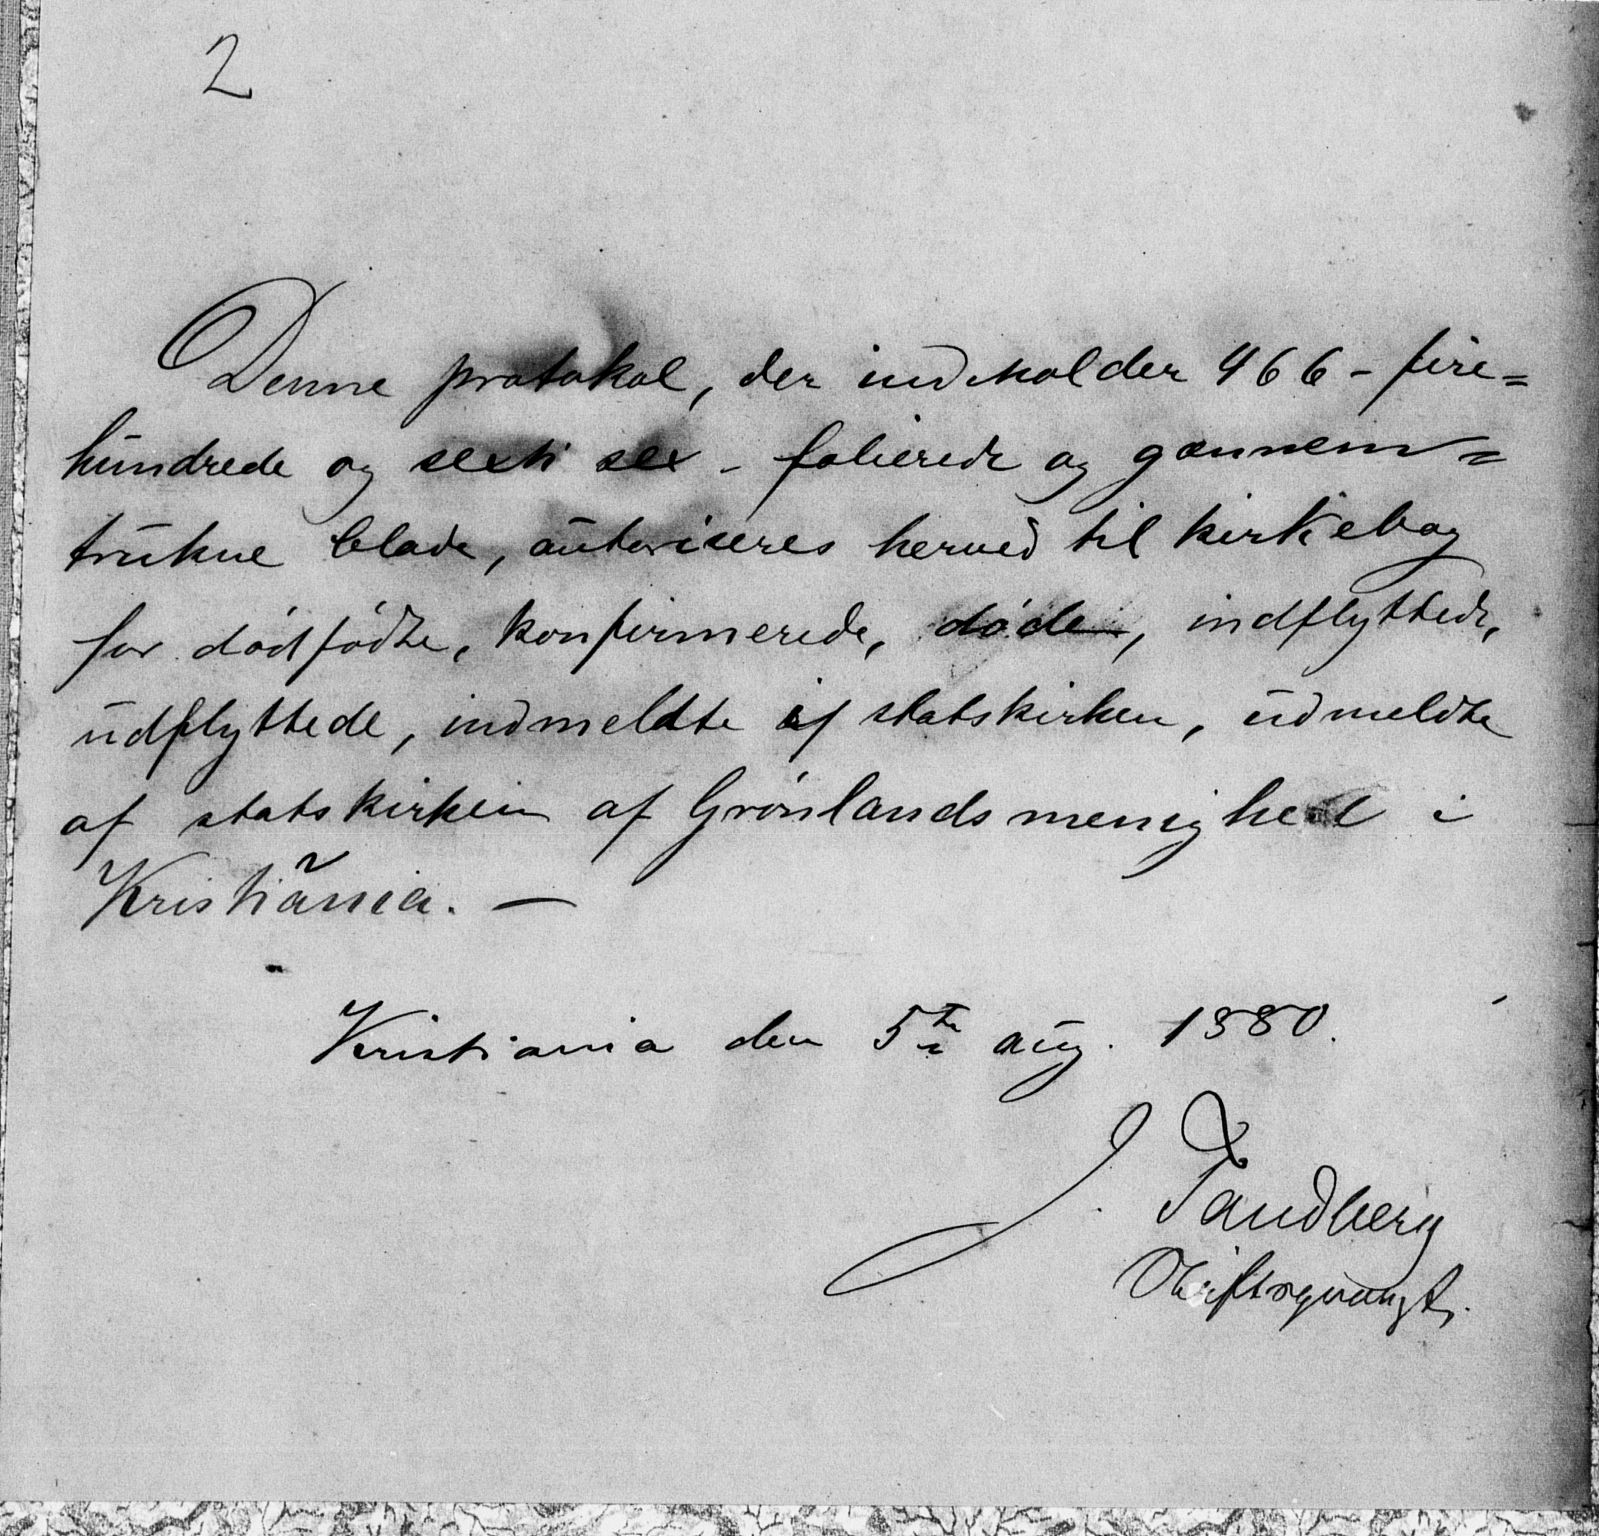 2
Denne protokol, der indholder 466 - fire=
hundrede og sexti sex - folierede og gænnem=
trukne blade, autoriseres herved til kirkebog
for dødfødte, konfirmerede, døde, indflyttede,
udflyttede, indmeldte i statskirken, udmeldte
af statskirken af Grønlands menighed i
Kristiania. —
Kristiania den 5te aug. 1880.
J. Tandberg